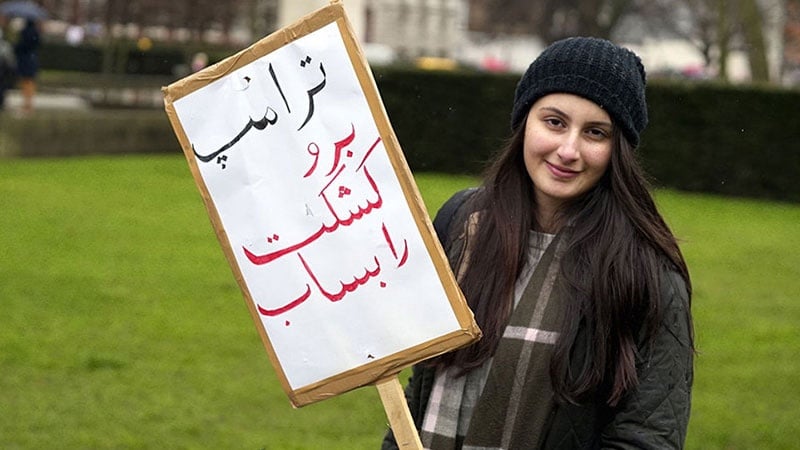 ترامپ
برو
کشکت
را بساب